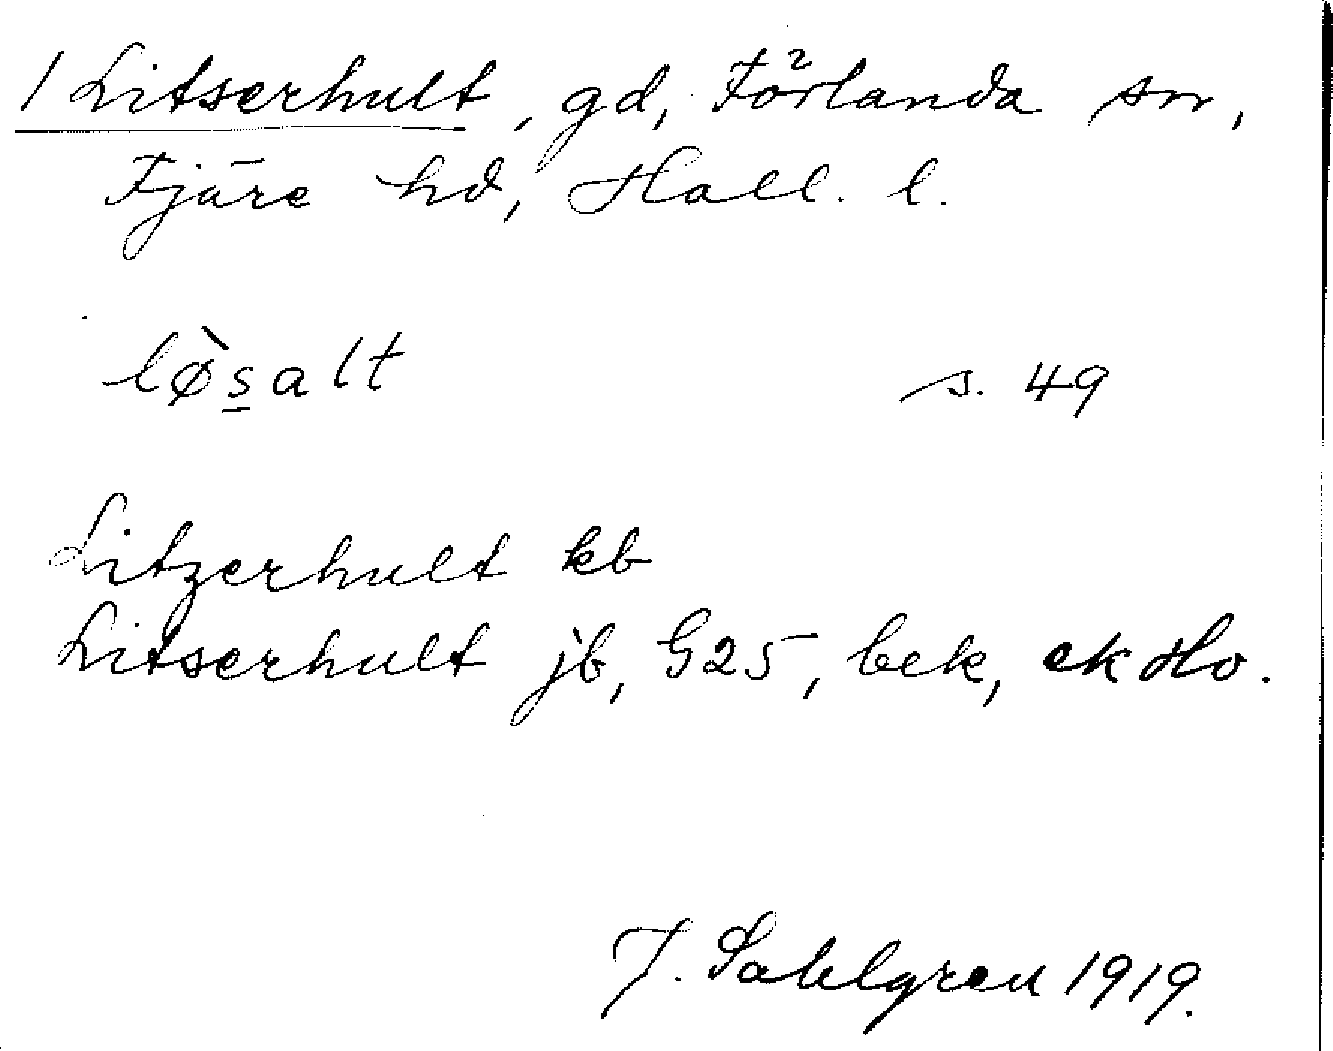 1 Litserhult, gd, Förlanda sn,
Fjäre hd, Hall. l.
lø̀s̲alt s. 49
Litzerhult kb
Litserhult jb, G25, bek, ek Ho.
J. Sahlgren 1919.